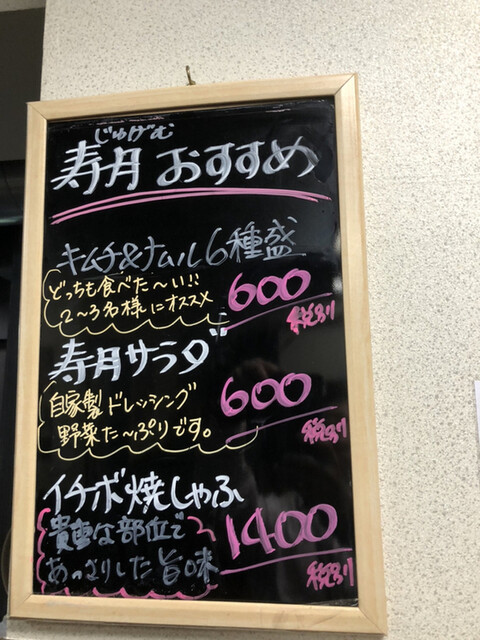 じゅげむ
寿月 おすすめ
キムチ&ナムル6種盛
どっちも食べた〜い!!
2〜3名様にオススメ
600
税別
寿月サラダ
自家製ドレッシング
野菜た〜ぷりです。
600
税別
イチボ焼しゃぶ
貴重な部位で
あっさりした旨味
1400
税別